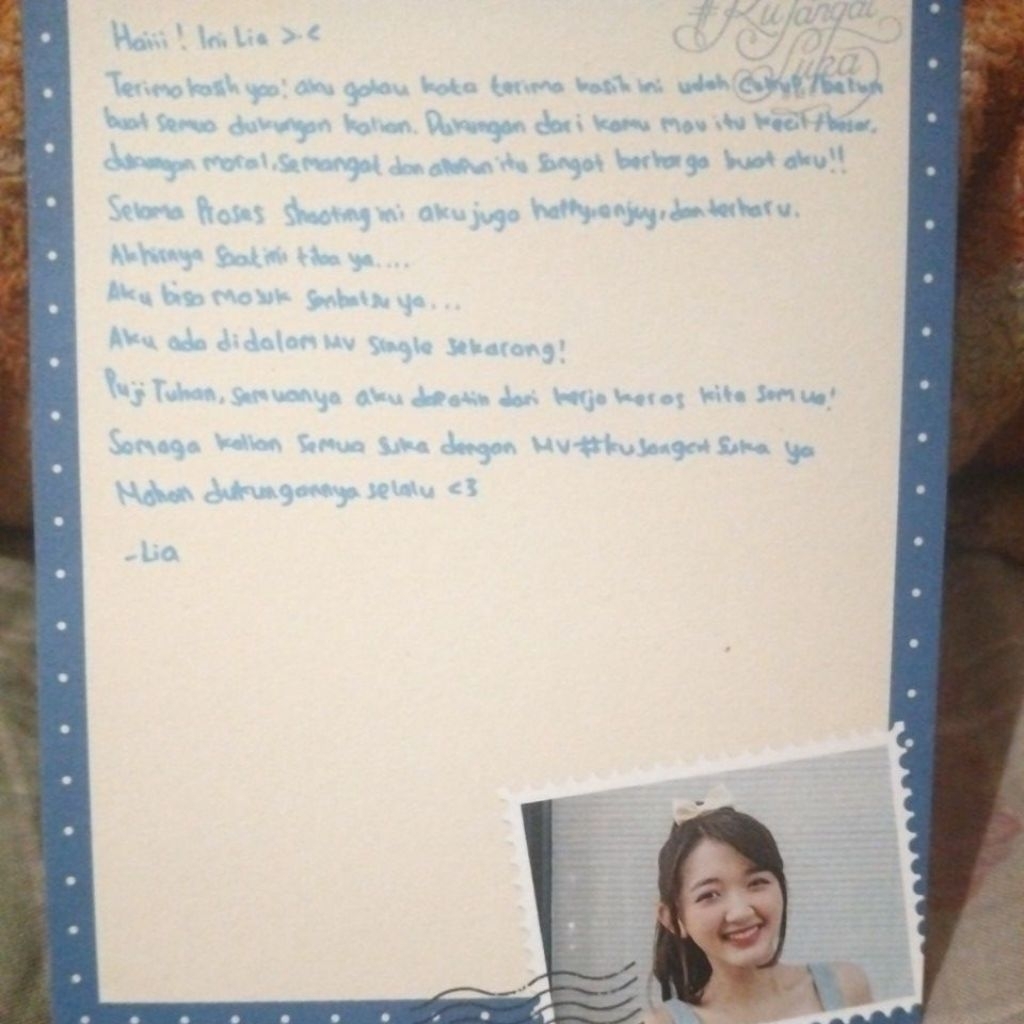 #KuSangat
Suka
Haiii! Ini Lia >.<
Terima kasih yaa! aku galau kata terima kasih ini udah cukup/belum
buat semua dukungan kalian. Dukungan dari kamu mau itu kecil/besar,
dukungan moral, semangat dan apapun itu sangat berharga buat aku!!
Selama Proses shooting ini aku juga happy, enjoy, dan terharu.
Akhirnya saat ini tiba ya....
Aku bisa masuk Senbatsu ya...
Aku ada didalam MV single sekarang!
Puji Tuhan, semuanya aku dapatin dari kerja keras kita semua!
Semoga kalian semua suka dengan MV #kusangatsuka ya
Mohon dukungannya selalu <3
-Lia